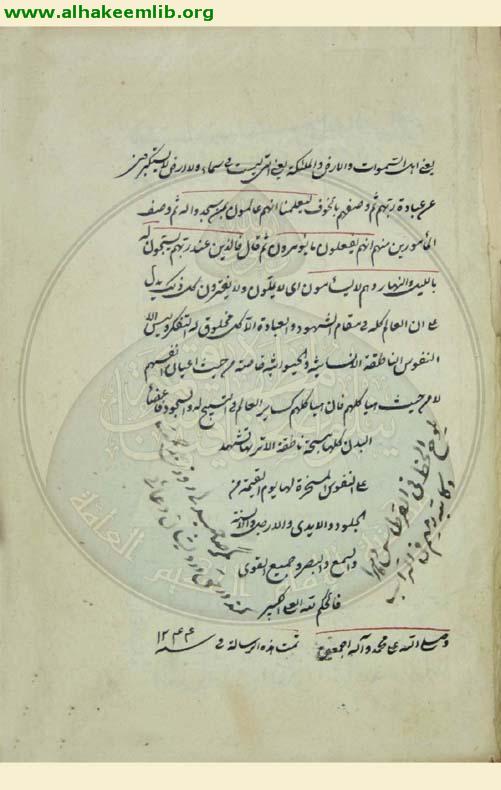 www.alhakeemlib.org
يعني اهل السموات والارض والملئكة يعني التي ليست في سماء ولا ارض لا يستكبرون
عن عبادة ربهم ثم وصفهم بالخوف ليعلمنا انهم عالمون بمن سجدوا له ثم وصف
المأمورين منهم انهم يفعلون ما يؤمرون ثم قال فالذين عند ربهم يسبحون له
بالليل والنهار وهم لا يسأمون اى لا يملون ولا يفترون كل ذلك يدل
على ان العالم كله في مقام الشهود والعبادة الا كل مخلوق له التفكر وليس الا
النفوس الناطقة الانسانية والحيوانية خاصة من حيث اعيان انفسهم
لا من حيث هياكلهم فان هياكلهم كساير العالم في التسبيح له والسجود فاعضاء
البدن كلها مسبحة ناطقة الا تريها تشهد
على النفوس المسخرة لها يوم القيمة من
الجلود والايدى والارجل والالسنة
والسمع والبصر وجميع القوى
فالحكم لله العلي الكبير
يلوح الخط في القرطاس دهرا
وكاتبه رميم في التراب
وصلى الله على محمد وآله اجمعين تمت هذه الرسالة في سنة ١٢٤٤